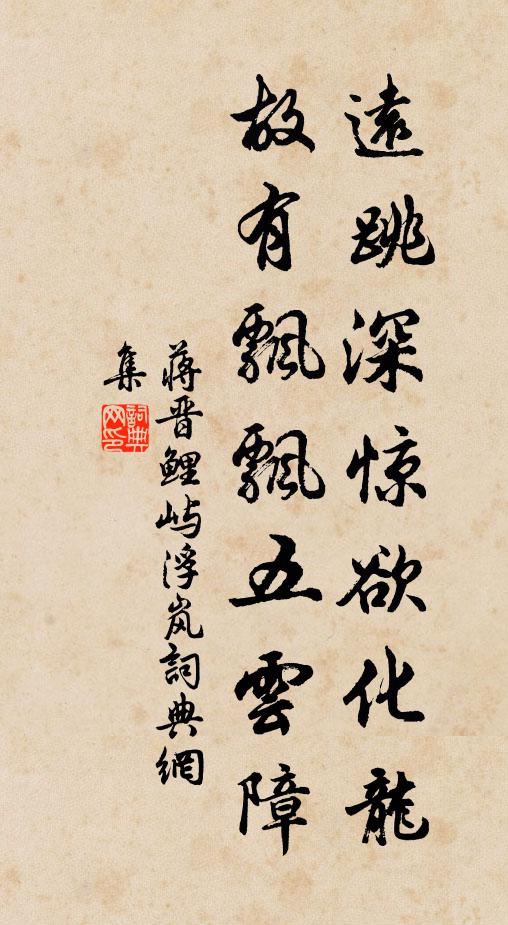 遠跳深惊欲化龍
故有飄飄五雲障
蔣晋鲤屿浮岚詞典網
集
詞典
网印